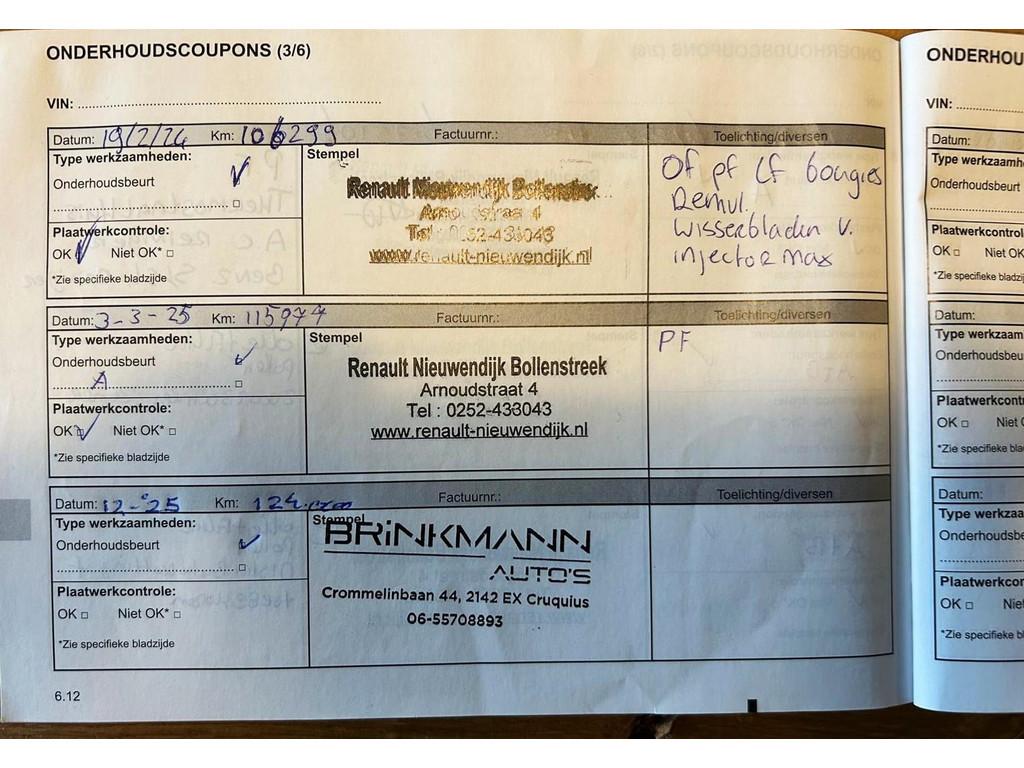 ONDERHOUDSCOUPONS (3/6)
VIN:
Datum: 19/2/24 Km: 106299 Factuurnr.: Toelichting/diversen
Type werkzaamheden:
Onderhoudsbeurt
Plaatwerkcontrole:
OK Niet OK*
*Zie specifieke bladzijde
Stempel
Renault Nieuwendijk Bollenstreek
Arnoudstraat 4
Tel : 0252-433043
www.renault-nieuwendijk.nl
Of pf Lf bougies
Remvl.
Wisserbladen V.
injector max
Datum: 3-3-25 Km: 115977 Factuurnr.: Toelichting/diversen
Type werkzaamheden:
Onderhoudsbeurt
A
Plaatwerkcontrole:
OK Niet OK*
*Zie specifieke bladzijde
Stempel
Renault Nieuwendijk Bollenstreek
Arnoudstraat 4
Tel : 0252-433043
www.renault-nieuwendijk.nl
PF
Datum: 12-'25 Km: 124. Factuurnr.: Toelichting/diversen
Type werkzaamheden:
Onderhoudsbeurt
Plaatwerkcontrole:
OK Niet OK*
*Zie specifieke bladzijde
Stempel
BRiNKMANN
AUTO'S
Crommelinbaan 44, 2142 EX Cruquius
06-55708893
6.12
ONDERHOU
VIN:
Datum:
Type werkzaamh
Onderhoudsbeu
Plaatwerkcontrol
OK Niet OK
*Zie specifieke bla
Datum:
Type werkzaam
Onderhoudsbeu
Plaatwerkcont
OK Niet O
*Zie specifieke bla
Datum:
Type werkzaa
Onderhoudsbe
Plaatwerkcor
OK Niet
*Zie specifieke b